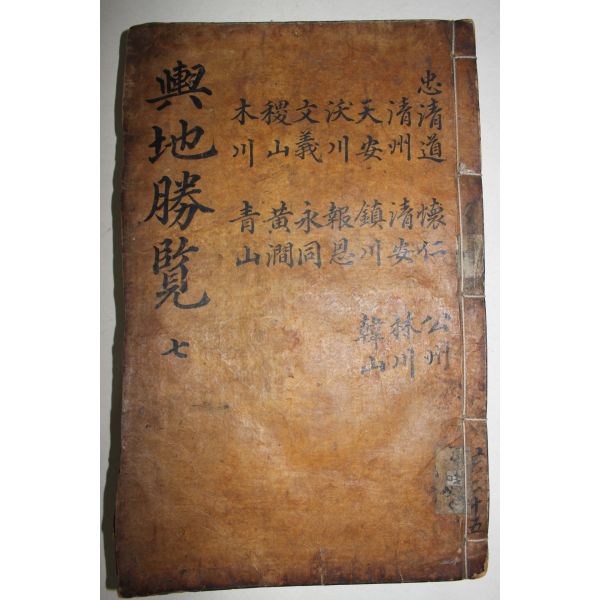 輿地勝覧 七
忠清道 懷仁 公州
清州 清安 林川
天安 鎮川 韓山
沃川 報恩
文義 永同
稷山 黃澗
木川 青山
十五